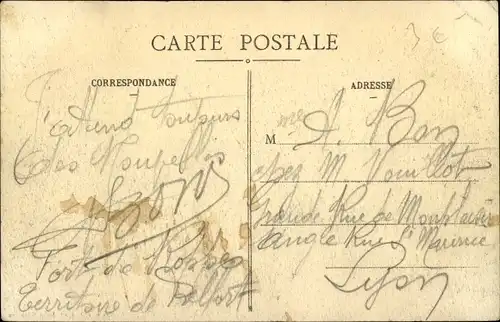 3 €
CARTE POSTALE
CORRESPONDANCE
J'attend toujours
des Nouvelles
Fort de Roppe
Territoire de Belfort
ADRESSE
Mme A. Bon
chez M. Vouillot
Grande Rue de Monplaisir
angle Rue St Maurice
Lyon